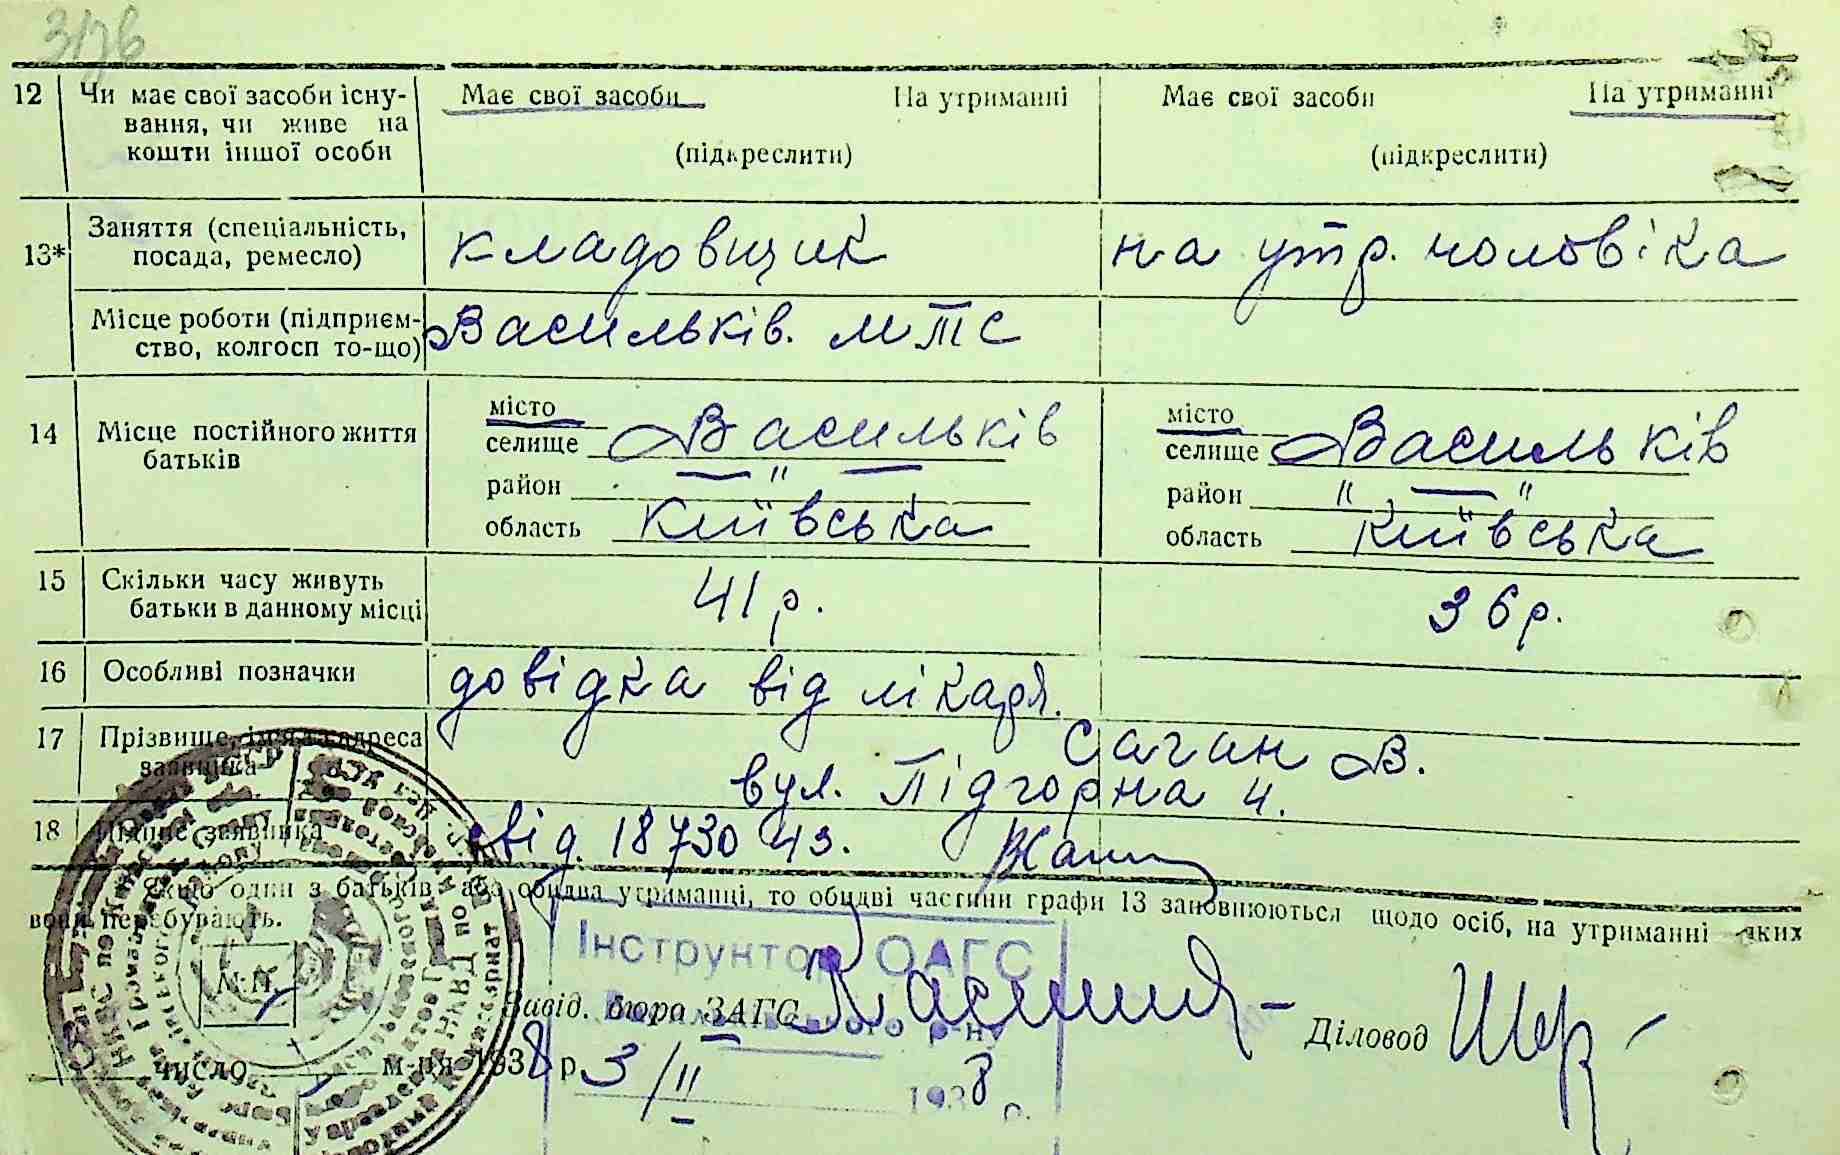 3176
12 Чи має свої засоби існу- Має свої засоби На утриманні Має свої засоби На утриманні
вання, чи живе на
кошти іншої особи (підкреслити) (підкреслити)
13* Заняття (спеціальність, кладовщик на утр. чоловіка
посада, ремесло)
Місце роботи (підприєм- Васильків. МТС
ство, колгосп то-що)
14 Місце постійного життя місто Васильків місто Васильків
батьків селище селище
район — " — район " — "
область Київська область Київська
15 Скільки часу живуть 41 р. 36 р.
батьки в данному місці
16 Особливі позначки довідка від лікаря.
17 Прізвище, ім'я та адреса Саган В.
заявника вул. Підгорна 4.
18 Підпис заявника свід. 1873043.
Якщо один з батьків або обидва утриманні, то обидві частини графи 13 заповнюються щодо осіб, на утриманні яких
вони перебувають.
Інструктор ОАГС
М.П.
Завід. бюро ЗАГС Діловод
р-ну
число м-ця 1938 р.
3/II 1938 р.